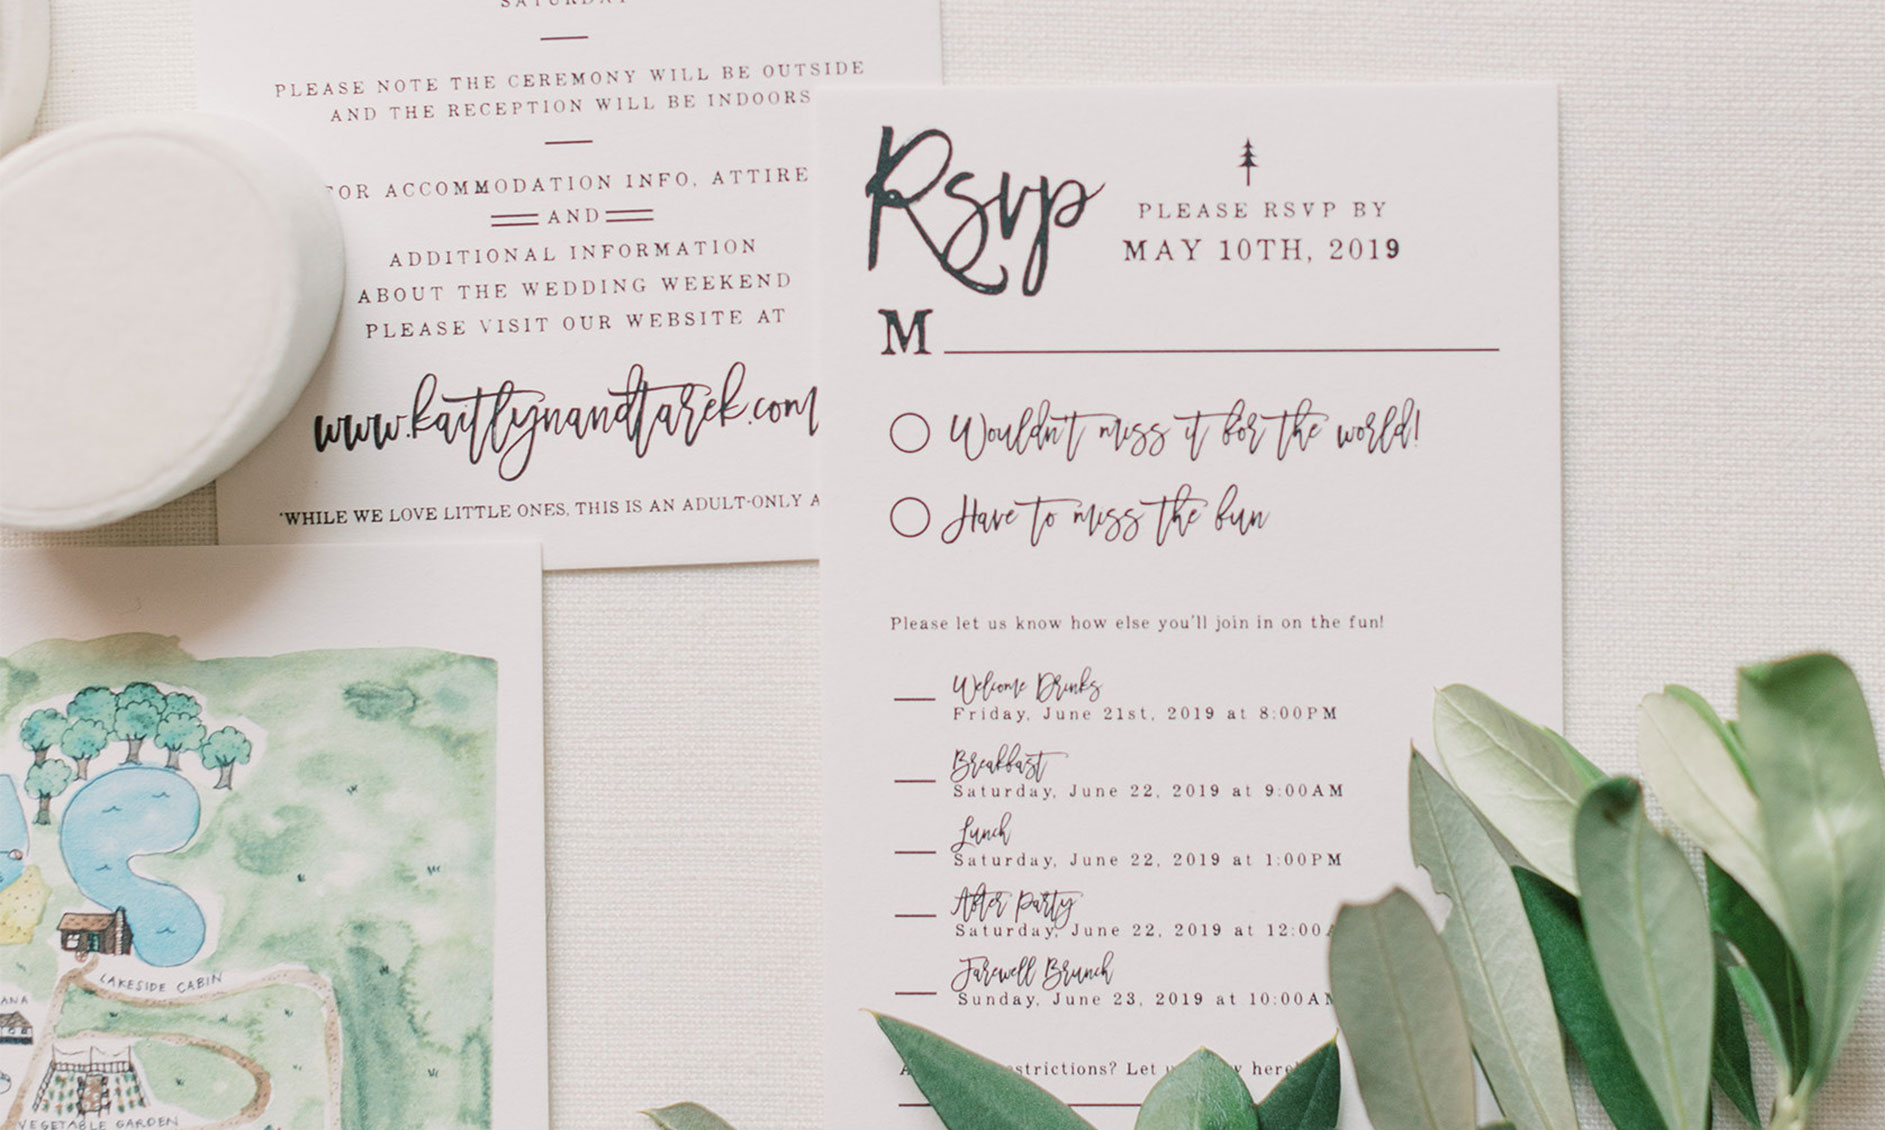 SATURDAY
PLEASE NOTE THE CEREMONY WILL BE OUTSIDE
AND THE RECEPTION WILL BE INDOORS
FOR ACCOMMODATION INFO, ATTIRE
AND
ADDITIONAL INFORMATION
ABOUT THE WEDDING WEEKEND
PLEASE VISIT OUR WEBSITE AT
www.kaitlynandtarek.com
*WHILE WE LOVE LITTLE ONES, THIS IS AN ADULT-ONLY A
Rsvp
PLEASE RSVP BY
MAY 10TH, 2019
M
Wouldn't miss it for the world!
Have to miss the fun
Please let us know how else you'll join in on the fun!
Welcome Drinks
Friday, June 21st, 2019 at 8:00PM
Breakfast
Saturday, June 22, 2019 at 9:00AM
Lunch
Saturday, June 22, 2019 at 1:00PM
After Party
Saturday, June 22, 2019 at 12:00A
Farewell Brunch
Sunday, June 23, 2019 at 10:00AM
estrictions? Let here!
LAKESIDE CABIN
ANA
VEGETABLE GARDEN